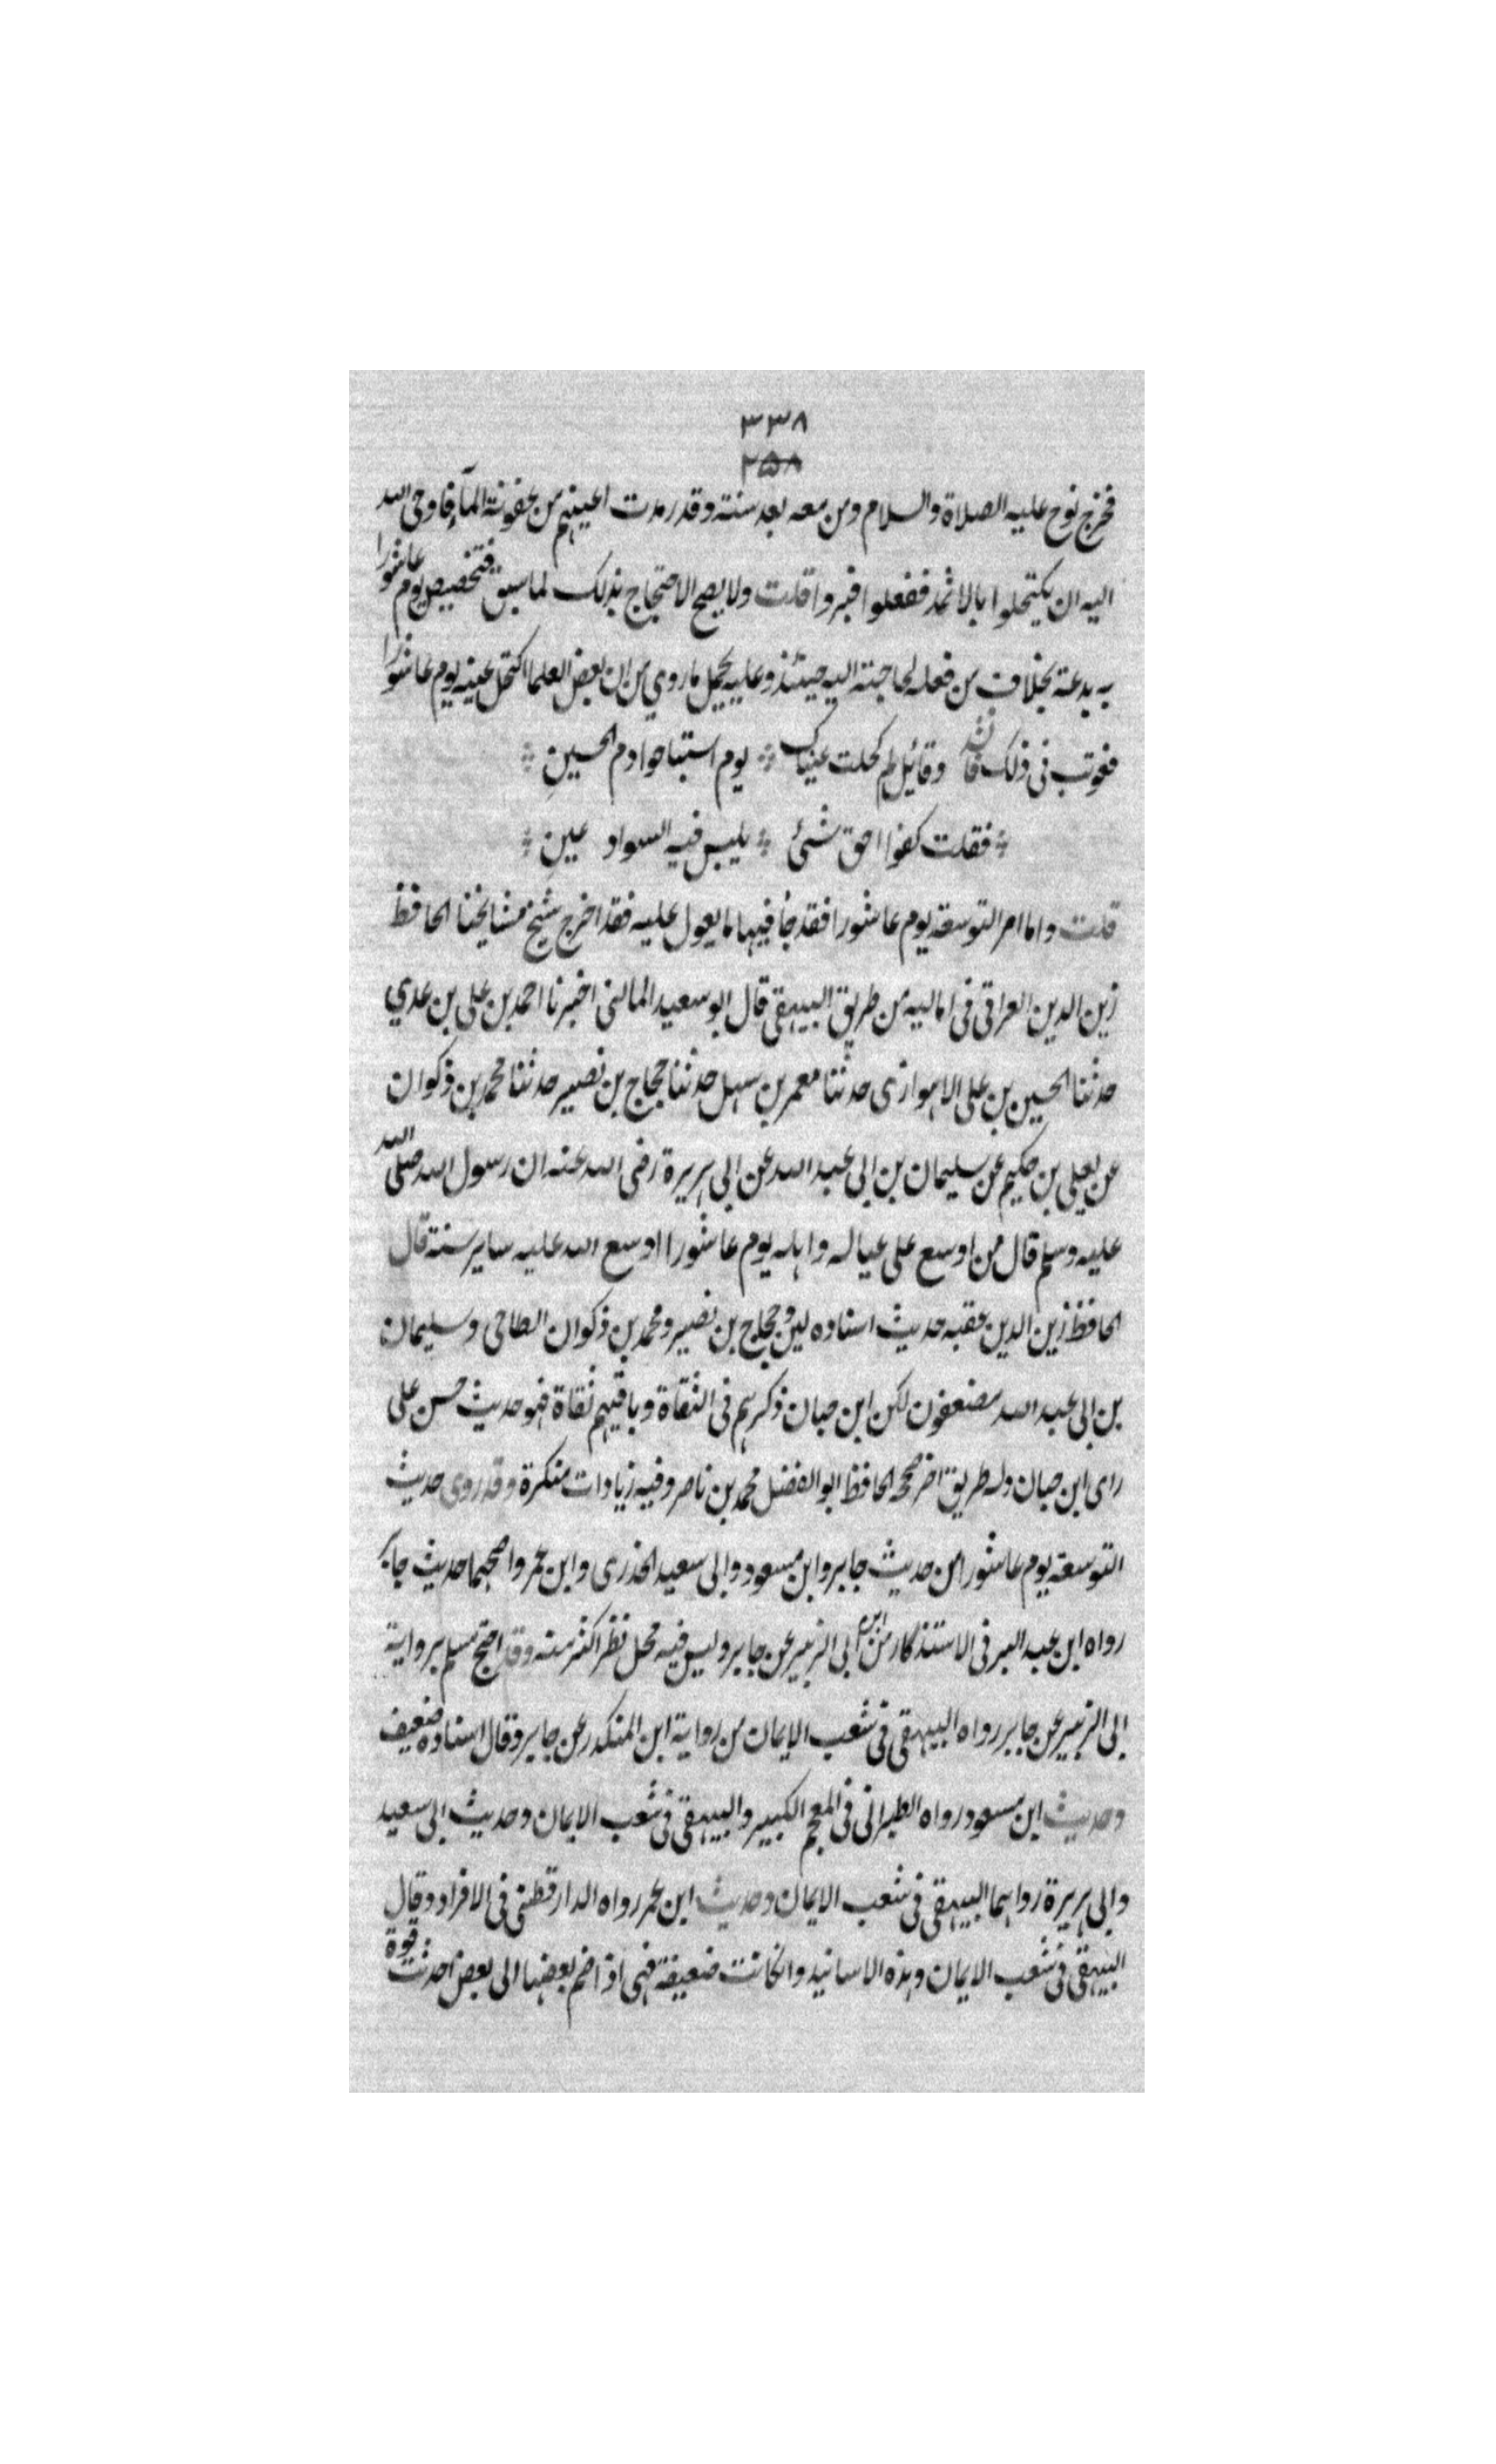 ٣٣٨
٢٥٨
فخرج نوح عليه الصلاة والسلام ومن معه بعد سنته وقد رمدت اعينهم من عفونة المآء فاوحى الله
اليه ان يكتحلوا بالاثمد ففعلوا فبروا قلت ولا يصح الاحتجاج بذلك لما سبق فتخصيص يوم عاشورا
به بدعة بخلاف من فعله لحاجته اليه حينئذ وعليه يحمل ما روي من ان بعض العلما اكتحل عينه يوم عاشورا
فعوتب في ذلك فانشد وقائل لم كحلت عيناك يوم استباحوا دم الحسينِ
فقلت كفوا احق شئ يلبس فيه السواد عينِ
قلت واما امر التوسعة يوم عاشورا فقد جأ فيها ما يعول عليه فقد اخرج شيخ مشايخنا الحافظ
زين الدين العراقي في اماليه من طريق البيهقي قال ابو سعيد الماليني اخبرنا احمد بن علي بن عدي
حدثنا الحسين بن علي الاهوازي حدثنا معمر بن سهل حدثنا حجاج بن نصير حدثنا محمد بن ذكوان
عن يعلى بن حكيم عن سليمان بن ابي عبد الله عن ابي هريرة رضى الله عنه ان رسول الله صلى الله
عليه وسلم قال من اوسع على عياله واهله يوم عاشورا اوسع الله عليه ساير سنته قال
الحافظ زين الدين عقبه حديث اسناده لين وحجاج بن نصير ومحمد بن ذكوان الطاحي وسليمان
بن ابي عبد الله مضعفون لكن ابن حبان ذكرهم في الثقاة وباقيهم ثقاة فهو حديث حسن على
راى ابن حبان وله طريق اخر صححه الحافظ ابو الفضل محمد بن ناصر وفيه زيادات منكرة وقد روى حديث
التوسعة يوم عاشورا من حديث جابر وابن مسعود وابي سعيد الخدرى وابن عمر واصحهما حديث جابر
رواه ابن عبد البر في الاستذكار من ابي الزبير عن جابر وليس فيه محل نظر اكثر منه وقد احتج مسلم برواية
ابي الزبير عن جابر رواه البيهقي في شعب الايمان من رواية ابن المنكدر عن جابر وقال اسناده ضعيف
وحديث ابن مسعود رواه الطبراني في المعجم الكبير والبيهقي في شعب الايمان وحديث ابي سعيد
وابي هريرة رواهما البيهقي في شعب الايمان وحديث ابن عمر رواه الدارقطني في الافراد وقال
البيهقي في شعب الايمان وهذه الاسانيد وانكانت ضعيفة فهي اذا ضم بعضها الى بعض احدثت قوة